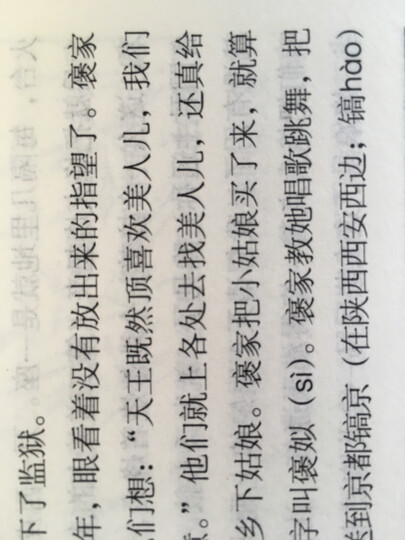 下了监狱。
年，眼看着没有放出来的指望了。褒家
们想：“天王既然顶喜欢美人儿，我们
。”他们就上各处去找美人儿，还真给
乡下姑娘。褒家把小姑娘买了来，就算
字叫褒姒（sì）。褒家教她唱歌跳舞，把
送到京都镐京（在陕西西安西边；镐hào）